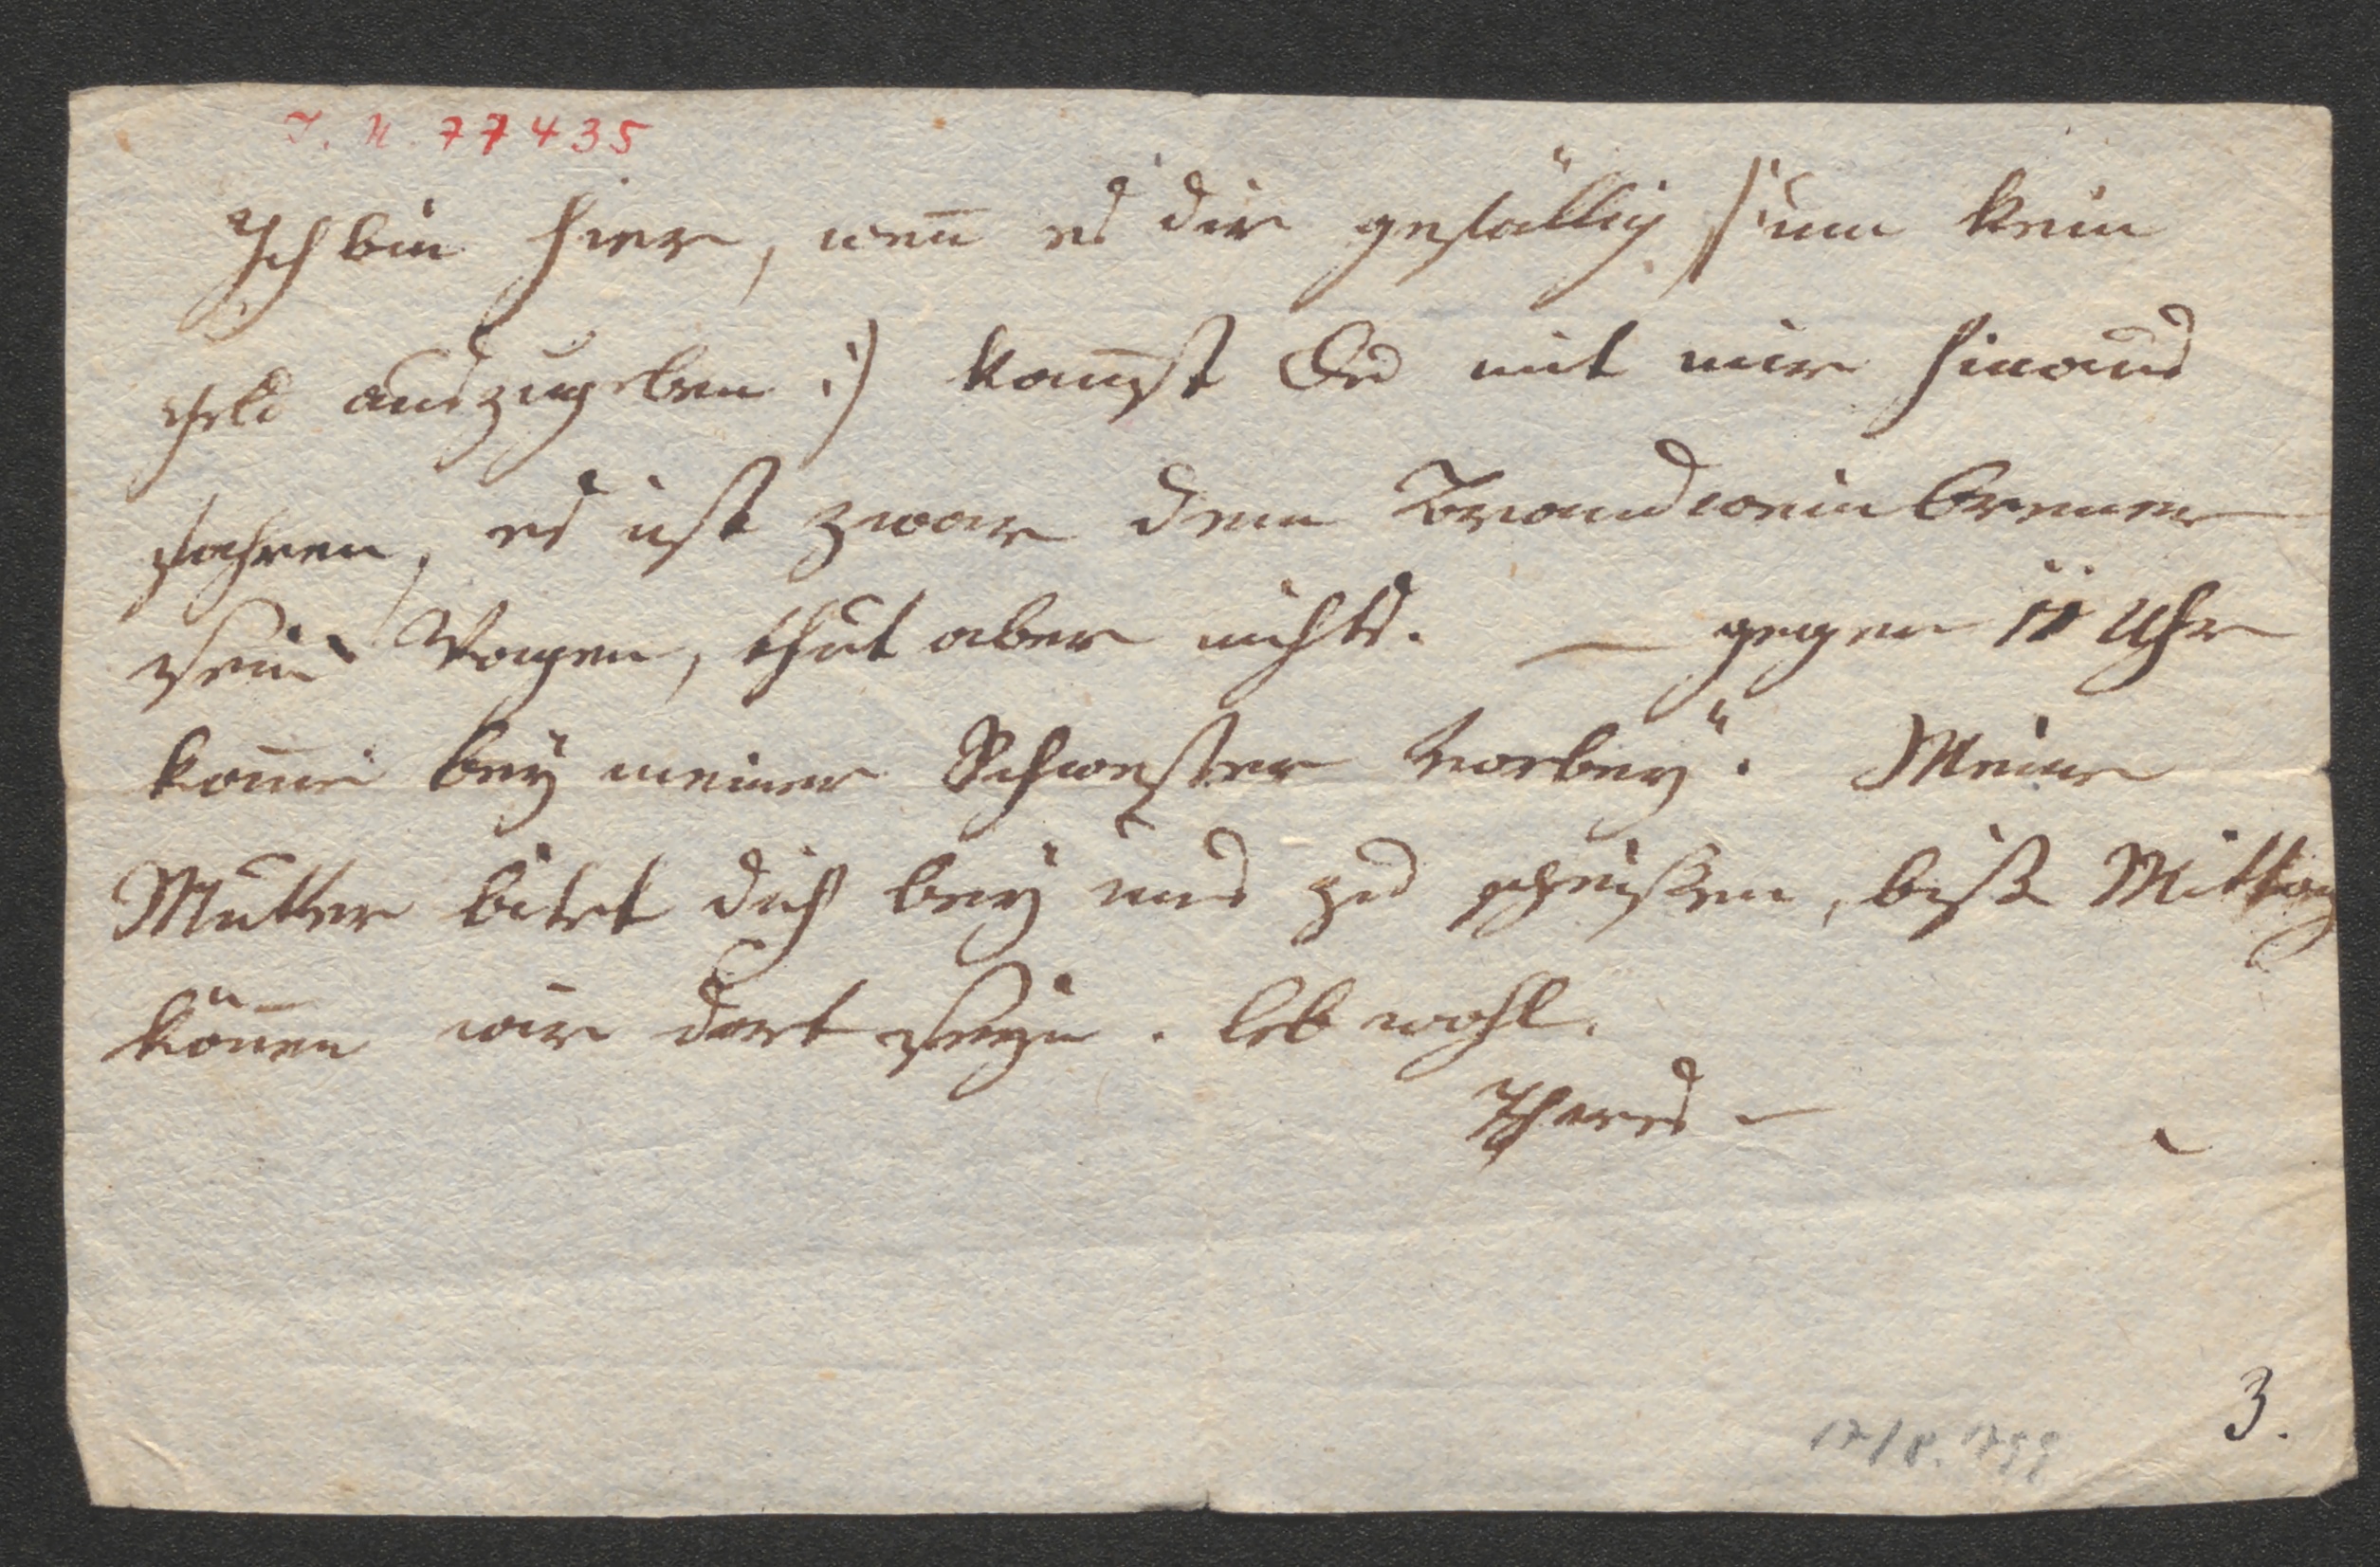 I. N. 77435
Ich bin hier, wen̄ es dir gefällig /: um kein
Geld auszugeben :/ kan̄st Du mit mir hinaus
fahren, es ist zwar dem Brandweinbrenner
sein Wagen, thut aber nichts. — gegen 11 Uhr
kom̄e beÿ meiner Schwester vorbeÿ. Meine
Mutter bitet dich beÿ uns zu speißen, biß Mittag
kön̄en wir dort seyn. leb wohl.
Theres —
17/8. 1799
3.